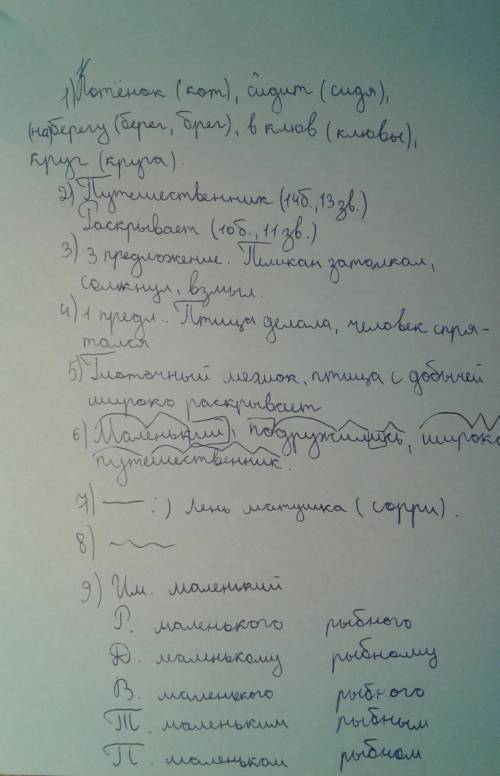 1) Котёнок (кот), сидит (сидя),
(на)берегу (берег, брег), в клюв (клювы),
круг (круга).
2) Путешественник (14б., 13 зв.)
Раскрывает (10б., 11 зв.)
3) 3 предложение. Пеликан затолкал,
сомкнул, взмыл.
4) 1 предл.. Птица делала, человек спря-
тался
5) Глоточный мешок, птица с добычей
широко раскрывает
6) Маленькими, подружились, широко
путешественник.
7) — :) Лень матушка (сорри).
8) —
9) Им. маленький
Р. маленького рыбного
Д. маленькому рыбному
В. маленького рыбного
Т. маленьким рыбным
П. маленьком рыбном